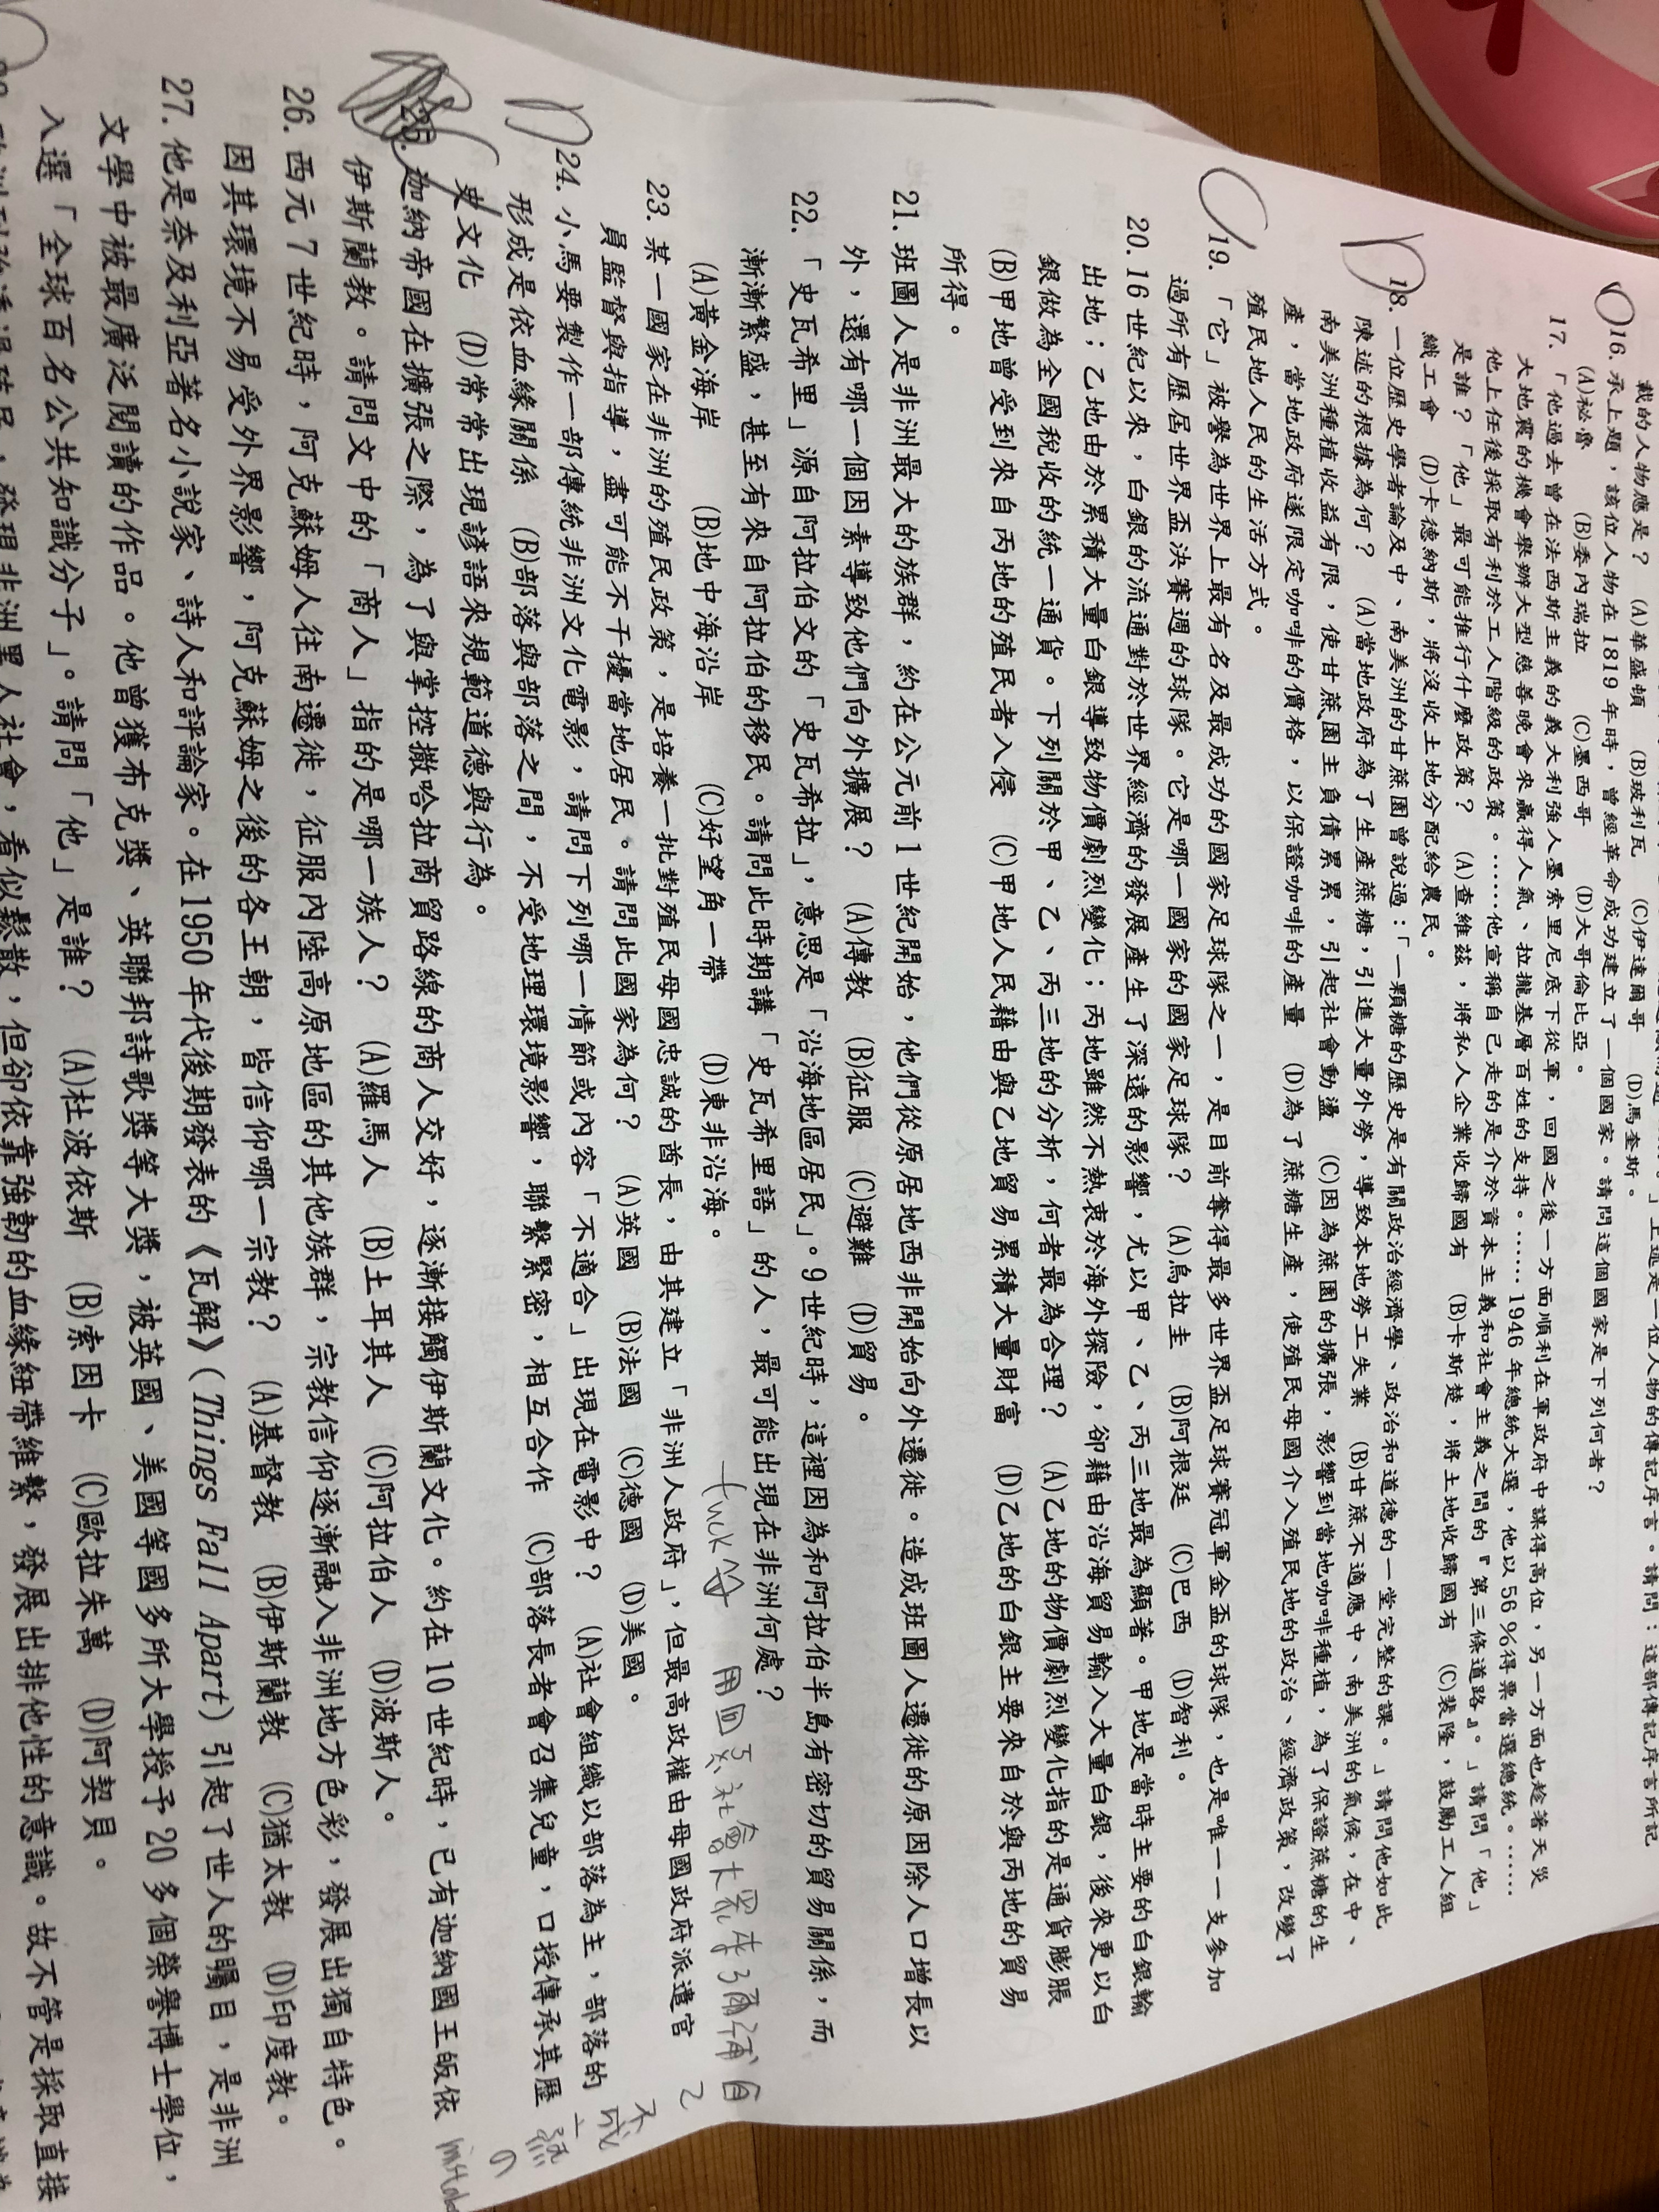 載的人物應是？ (A)華盛頓 (B)玻利瓦 (C)伊達爾哥 (D)馬奎斯。
16. 承上題，該位人物在1819年時，曾經革命成功建立了一個國家。請問這個國家是下列何者？
(A)祕魯 (B)委內瑞拉 (C)墨西哥 (D)大哥倫比亞。
17. 「他過去曾在法西斯主義的義大利強人墨索里尼底下從軍，回國之後一方面順利在軍政府中謀得高位，另一方面也趁著天災
大地震的機會舉辦大型慈善晚會來贏得人氣、拉攏基層百姓的支持。……1946年總統大選，他以56%得票當選總統。……
他上任後採取有利於工人階級的政策。……他宣稱自己走的是介於資本主義和社會主義之間的『第三條道路』。」請問「他」
是誰？「他」最可能推行什麼政策？ (A)查維茲，將私人企業收歸國有 (B)卡斯楚，將土地收歸國有 (C)裴隆，鼓勵工人組
織工會 (D)卡德納斯，將沒收土地分配給農民。
18. 一位歷史學者論及中、南美洲的甘蔗園曾說過：「一顆糖的歷史是有關政治經濟學、政治和道德的一堂完整的課。」請問他如此
陳述的根據為何？ (A)當地政府為了生產蔗糖，引進大量外勞，導致本地勞工失業 (B)甘蔗不適應中、南美洲的氣候，在中、
南美洲種植收益有限，使甘蔗園主負債累累，引起社會動盪 (C)因為蔗園的擴張，影響到當地咖啡種植，為了保證蔗糖的生
產，當地政府遂限定咖啡的價格，以保證咖啡的產量 (D)為了蔗糖生產，使殖民母國介入殖民地的政治、經濟政策，改變了
殖民地人民的生活方式。
19. 「它」被譽為世界上最有名及最成功的國家足球隊之一，是目前奪得最多世界盃足球賽冠軍金盃的球隊，也是唯一一支參加
過所有歷屆世界盃決賽週的球隊。它是哪一國家的國家足球隊？ (A)烏拉圭 (B)阿根廷 (C)巴西 (D)智利。
20. 16世紀以來，白銀的流通對於世界經濟的發展產生了深遠的影響，尤以甲、乙、丙三地最為顯著。甲地是當時主要的白銀輸
出地；乙地由於累積大量白銀導致物價劇烈變化；丙地雖然不熱衷於海外探險，卻藉由沿海貿易輸入大量白銀，後來更以白
銀做為全國稅收的統一通貨。下列關於甲、乙、丙三地的分析，何者最為合理？ (A)乙地的物價劇烈變化指的是通貨膨脹
(B)甲地曾受到來自丙地的殖民者入侵 (C)甲地人民藉由與乙地貿易累積大量財富 (D)乙地的白銀主要來自於與丙地的貿易
所得。
21. 班圖人是非洲最大的族群，約在公元前1世紀開始，他們從原居地西非開始向外遷徙。造成班圖人遷徙的原因除人口增長以
外，還有哪一個因素導致他們向外擴展？ (A)傳教 (B)征服 (C)避難 (D)貿易。
22. 「史瓦希里」源自阿拉伯文的「史瓦希拉」，意思是「沿海地區居民」。9世紀時，這裡因為和阿拉伯半島有密切的貿易關係，而
漸漸繁盛，甚至有來自阿拉伯的移民。請問此時期講「史瓦希里語」的人，最可能出現在非洲何處？
(A)黃金海岸 (B)地中海沿岸 (C)好望角一帶 (D)東非沿海。
23. 某一國家在非洲的殖民政策，是培養一批對殖民母國忠誠的酋長，由其建立「非洲人政府」，但最高政權由母國政府派遣官
員監督與指導，盡可能不干擾當地居民。請問此國家為何？ (A)英國 (B)法國 (C)德國 (D)美國。
24. 小馬要製作一部傳統非洲文化電影，請問下列哪一情節或內容「不適合」出現在電影中？ (A)社會組織以部落為主，部落的
形成是依血緣關係 (B)部落與部落之間，不受地理環境影響，聯繫緊密，相互合作 (C)部落長者會召集兒童，口授傳承其歷
史文化 (D)常常出現諺語來規範道德與行為。
25. 迦納帝國在擴張之際，為了與掌控撒哈拉商貿路線的商人交好，逐漸接觸伊斯蘭文化。約在10世紀時，已有迦納國王皈依
伊斯蘭教。請問文中的「商人」指的是哪一族人？ (A)羅馬人 (B)土耳其人 (C)阿拉伯人 (D)波斯人。
26. 西元7世紀時，阿克蘇姆人往南遷徙，征服內陸高原地區的其他族群，宗教信仰逐漸融入非洲地方色彩，發展出獨自特色。
因其環境不易受外界影響，阿克蘇姆之後的各王朝，皆信仰哪一宗教？ (A)基督教 (B)伊斯蘭教 (C)猶太教 (D)印度教。
27. 他是奈及利亞著名小說家、詩人和評論家。在1950年代後期發表的《瓦解》(Things Fall Apart) 引起了世人的矚目，是非洲
文學中被最廣泛閱讀的作品。他曾獲布克獎、英聯邦詩歌獎等大獎，被英國、美國等國多所大學授予20多個榮譽博士學位，
入選「全球百名公共知識分子」。請問「他」是誰？ (A)杜波依斯 (B)索因卡 (C)歐拉朱萬 (D)阿契貝。
發現非洲黑人社會，看似鬆散，但卻依靠強韌的血緣紐帶維繫，發展出排他性的意識。故不管是採取直接